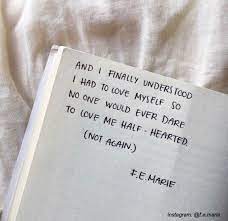 AND I FINALLY UNDERSTOOD
I HAD TO LOVE MYSELF SO
NO ONE WOULD EVER DARE
TO LOVE ME HALF-HEARTED.
(NOT AGAIN.)
F.E.MARIE
Instagram: @f.e.marie